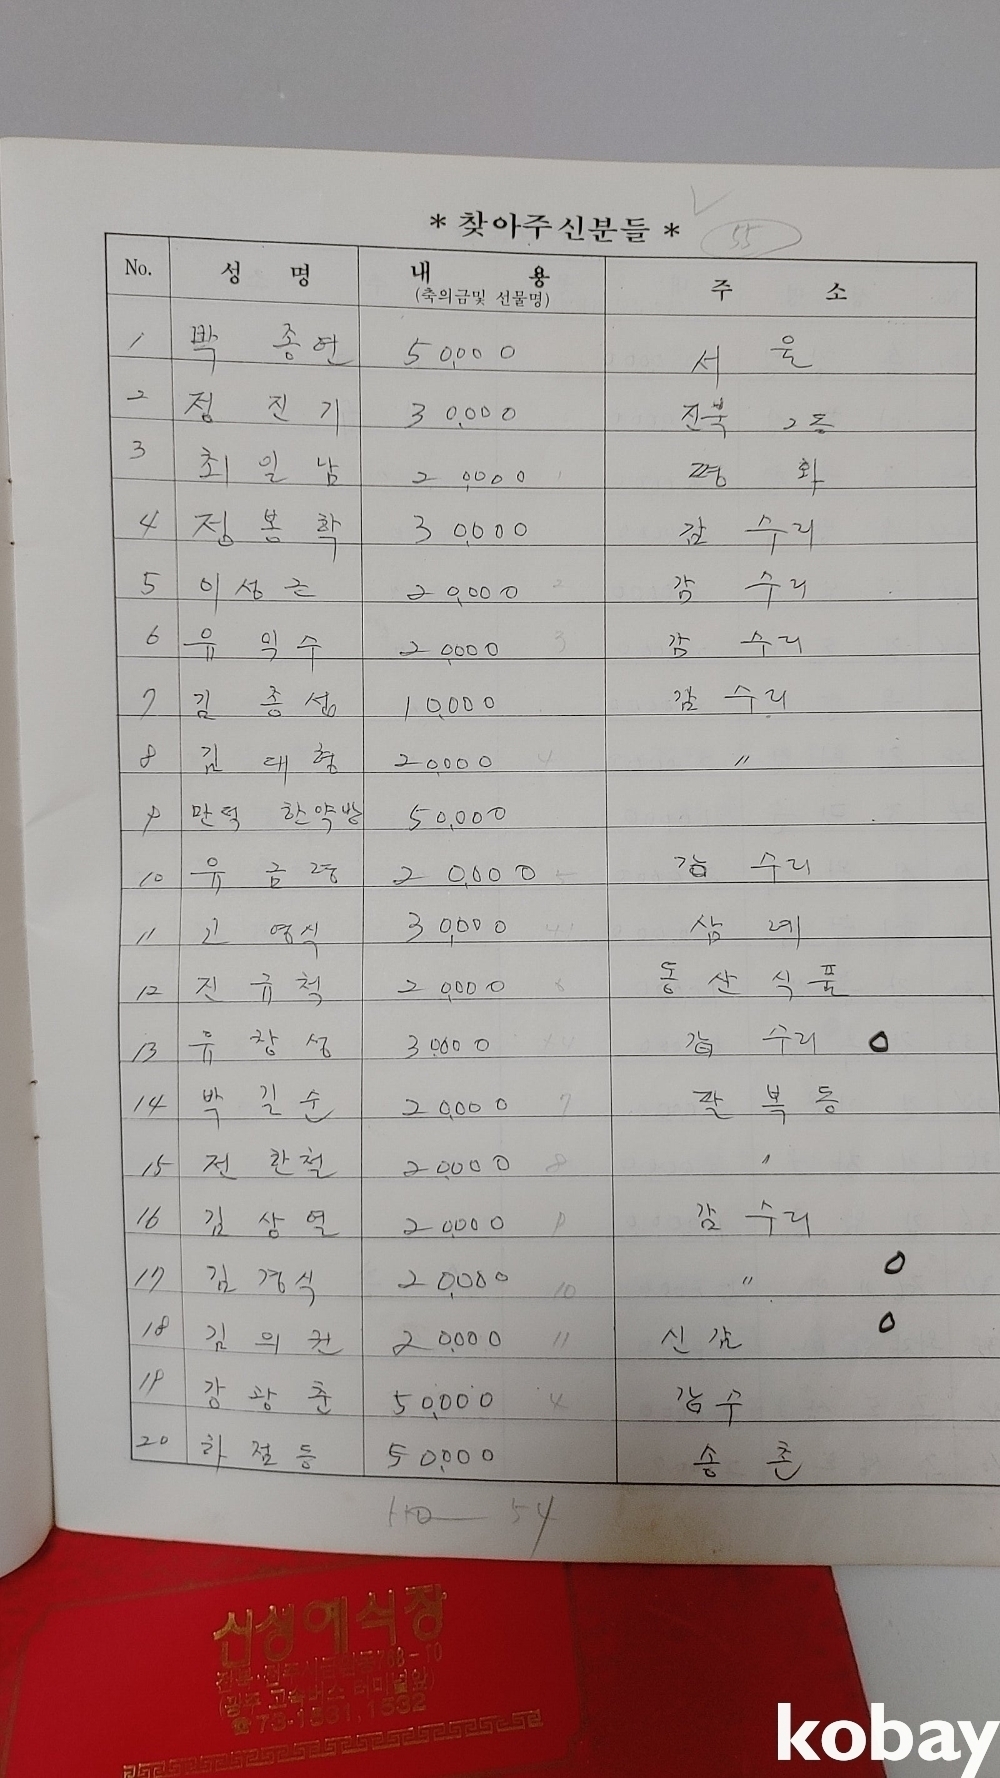 * 찾아주신분들 *
55
No. 성 명 내 용 주 소
(축의금및 선물명)
1 박 종연 50,000 서 울
2 정 진 기 30,000 진북 2동
3 최 일 남 20,000 평 화
4 정 봉 학 30,000 감 수리
5 이 성 근 20,000 2 감 수리
6 유 익 수 20,000 3 감 수리
7 김 종 섭 10,000 감 수리
8 김 대 형 20,000 4 〃
9 만덕 한약방 50,000
10 유 금 20,000 5 감 수리
11 고 영식 30,000 삼 례
12 진 규 척 20,000 동 산 식 품
13 유 창 성 30,000 감 수리 O
14 박 길 순 20,000 7 팔 복 동
15 전 환 철 20,000 8 〃
16 김 상 열 20,000 9 감 수리
17 김 경 식 20,000 10 〃 O
18 김 의 권 20,000 11 신 감 O
19 강 광 춘 50,000 4 감 수
20 하 점 등 50,000 송 촌
54
신생예식장
768-10
(광주 고속버스 터미널앞)
☎75-1531,1532
kobay